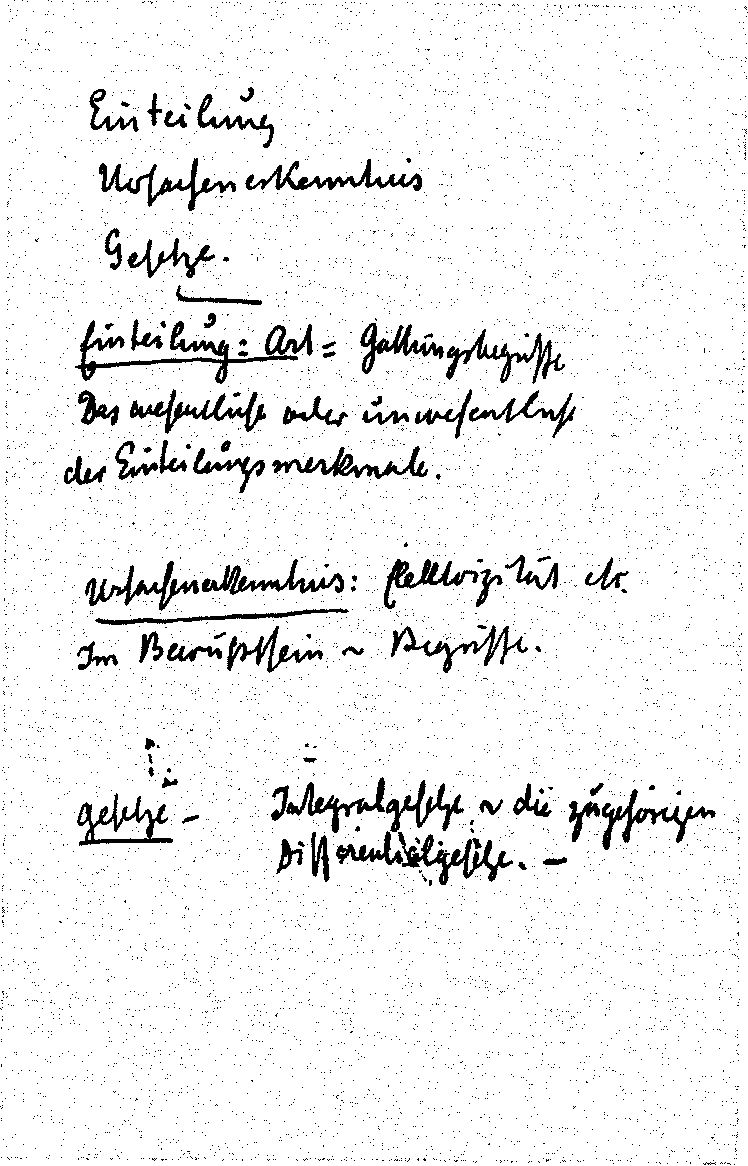 Einteilung
Ursachenerkenntnis
Gesetze.
Einteilung: Art = Gattungsbegriffe
Das wesentliche oder unwesentliche
der Einteilungsmerkmale.
Ursachenerkenntnis: Elektrizität etc.
Im Bewußtsein ~ Begriffe.
Gesetze – Integralgesetze ~ die zugehörigen
Differentialgesetze. –